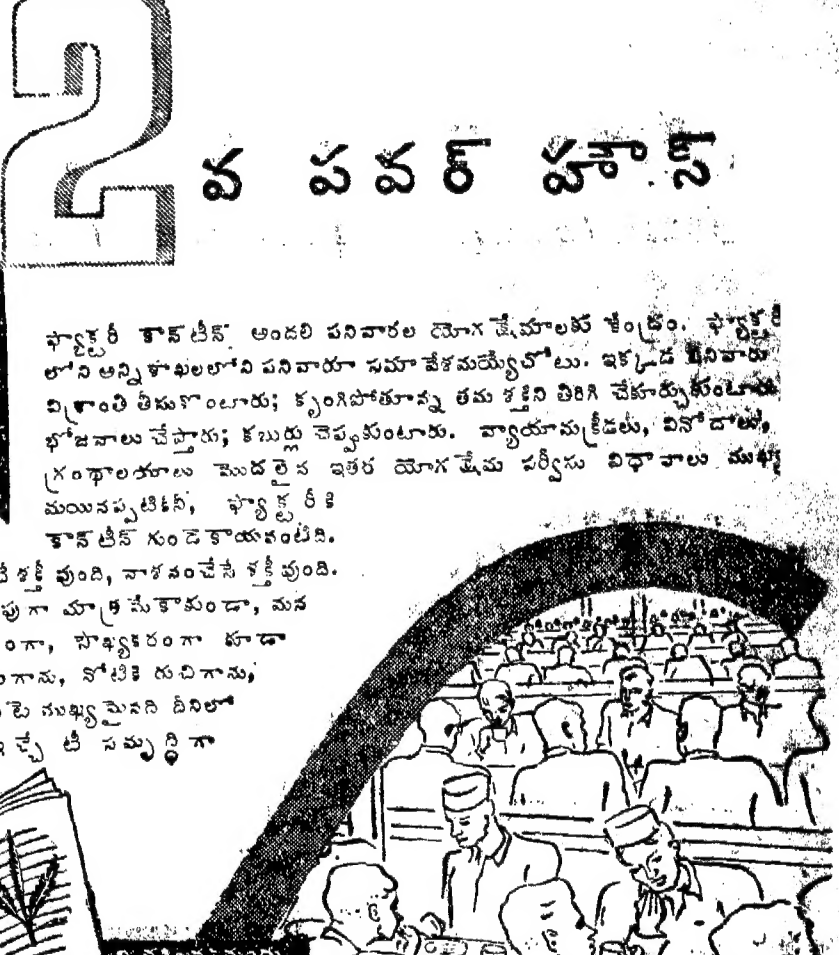 2వ పవర్ హౌస్
ఫ్యాక్టరీ కాన్‌టీన్ అందలి పనివారల యోగ క్షేమాలకు కేంద్రం. ఫ్యాక్టరీ
లోని అన్ని శాఖలలోని పనివారూ సమావేశమయ్యేచోటు. ఇక్కడ పనివారు
విశ్రాంతి తీసుకొంటారు; కృంగిపోతూన్న తమ శక్తిని తిరిగి చేకూర్చుకుంటారు
భోజనాలు చేస్తారు; కబుర్లు చెప్పుకుంటారు. వ్యాయామక్రీడలు, వినోదాలు,
గ్రంథాలయాలు మొదలైన ఇతర యోగ క్షేమ సర్వీసు విధానాలు ముఖ్య
మయినప్పటికినీ, ఫ్యాక్టరీకి
కాన్‌టీన్ గుండెకాయవంటిది.
శక్తీ వుంది, నాశనంచేసే శక్తీవుంది.
మాత్రమేకాకుండా, మన
సౌఖ్యకరంగా కూడా
నోటికి రుచిగాను,
ముఖ్యమైనది దీనిలో
టీ సమృద్ధిగా